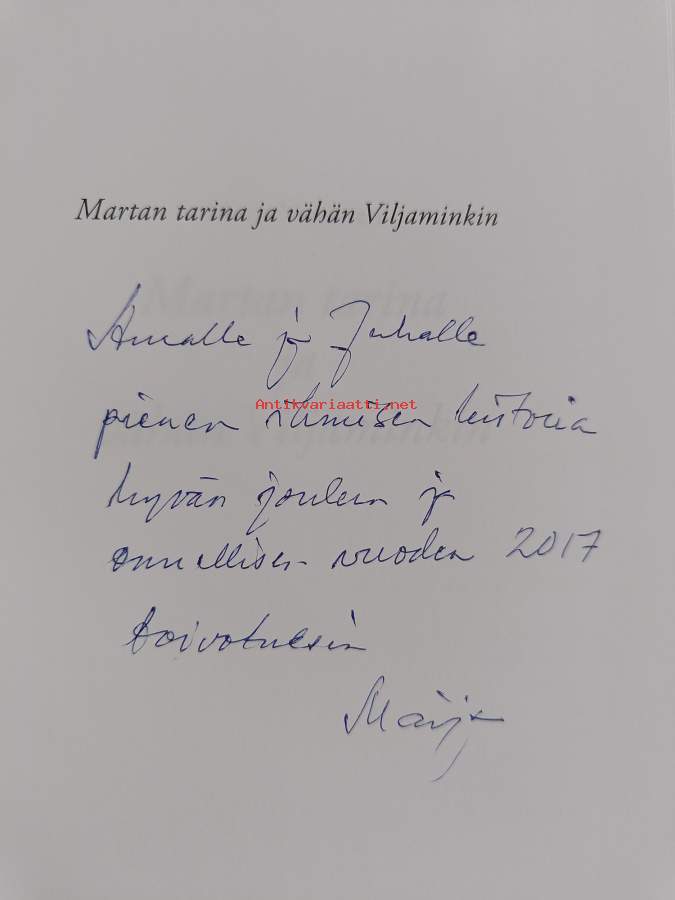 Martan tarina ja vähän Viljaminkin
Annalle ja Juhalle
Antikvariaatti.net
pienen ihmisen historia
hyvän joulun ja
onnellisen vuoden 2017
toivotuksin
Marja